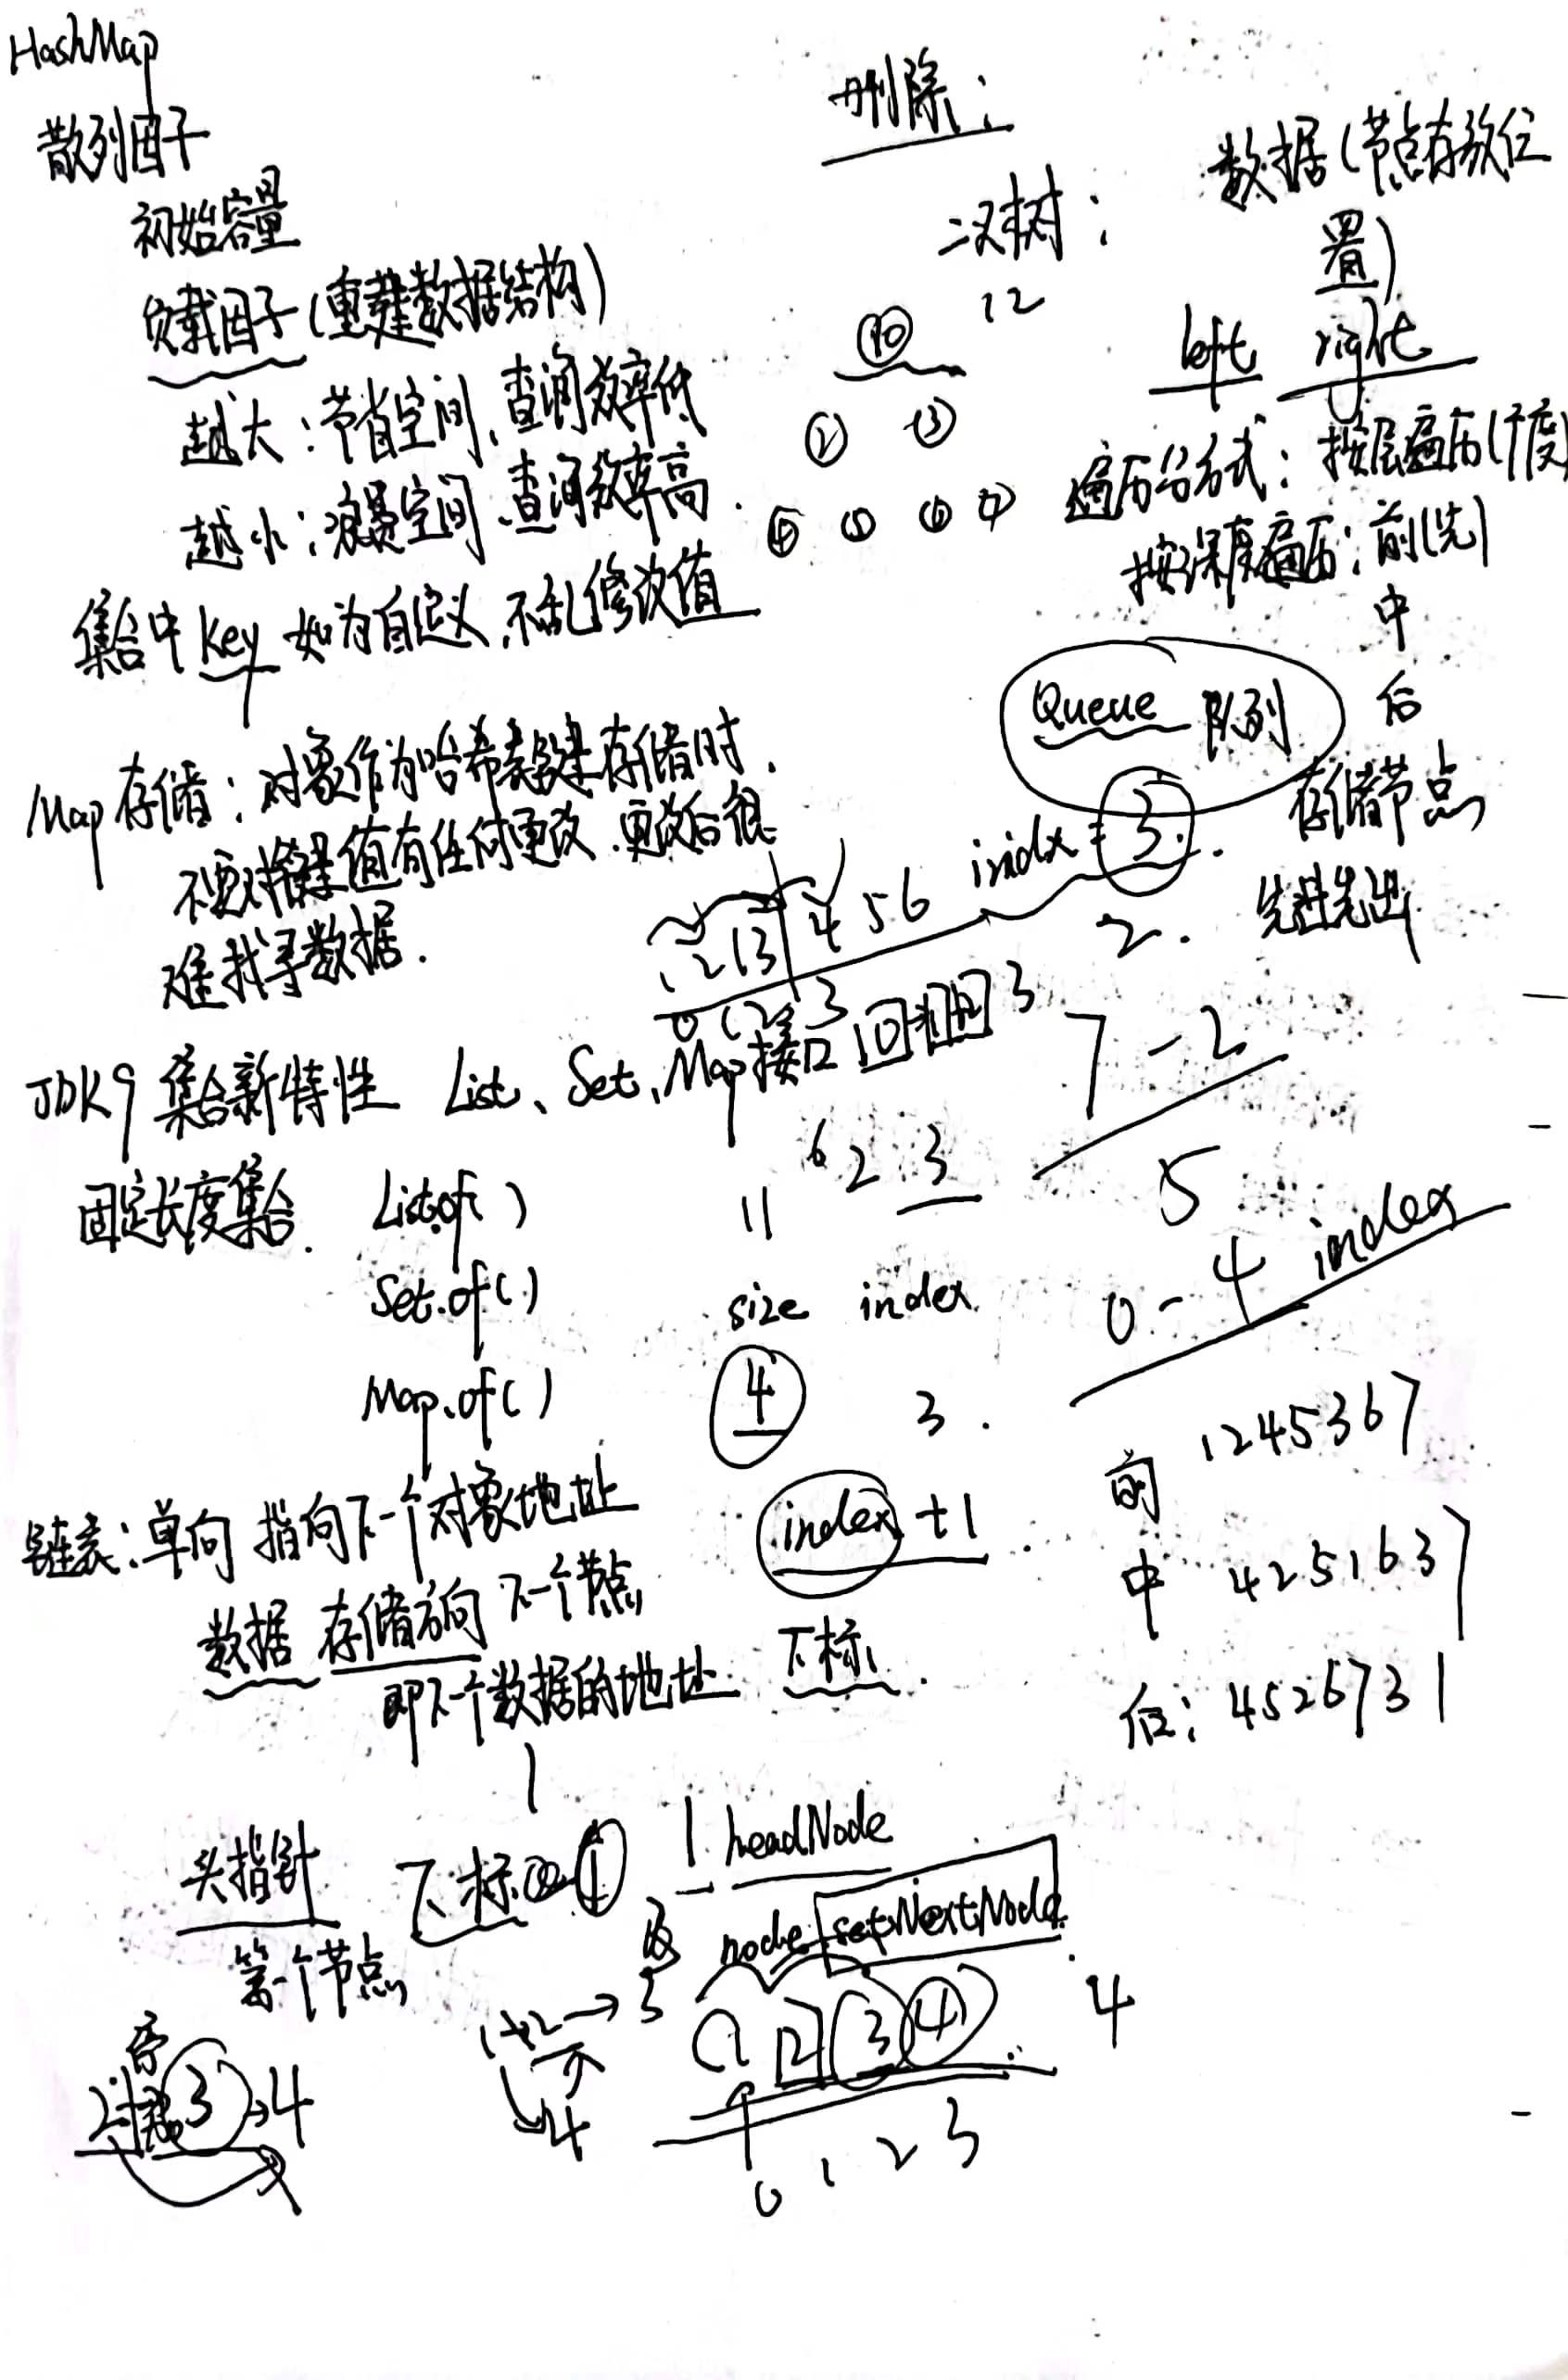 HashMap
散列因子
初始容量
负载因子(重建数据结构)
越大:节省空间、查询效率低
越小:浪费空间、查询效率高.
集合中key 如为自定义,不乱修改值
Map存储:对象作为哈希表键存储时.
不要对键值有任何更改.更改后很
难找寻数据.
JDK9 集合新特性 List、Set、Map接口
固定长度集合. List.of()
Set.of()
Map.of()
链表:单向 指向下一个对象地址
数据 存储方向 下一个节点
即下一个数据的地址
头指针
第一个节点
3 → 4
删除:
二叉树: 数据(节点存放位
置)
12
left right
② ③
④ ⑤ ⑥ ⑦
遍历公方式:按层遍历(广度)
按深度遍历:前(先)
中
后
Queue 队列
存储节点
先进先出
4 5 6 indx = 3.
2.
7 - 2
5
0 - 4 index
11 6 2 3
size index.
4 3.
index + 1
下标.
前 1245367
中 4251637
后: 4526731
下标 1
1. headNode
node.setNextNode.
1 2 3 4
4
0 1 2 3